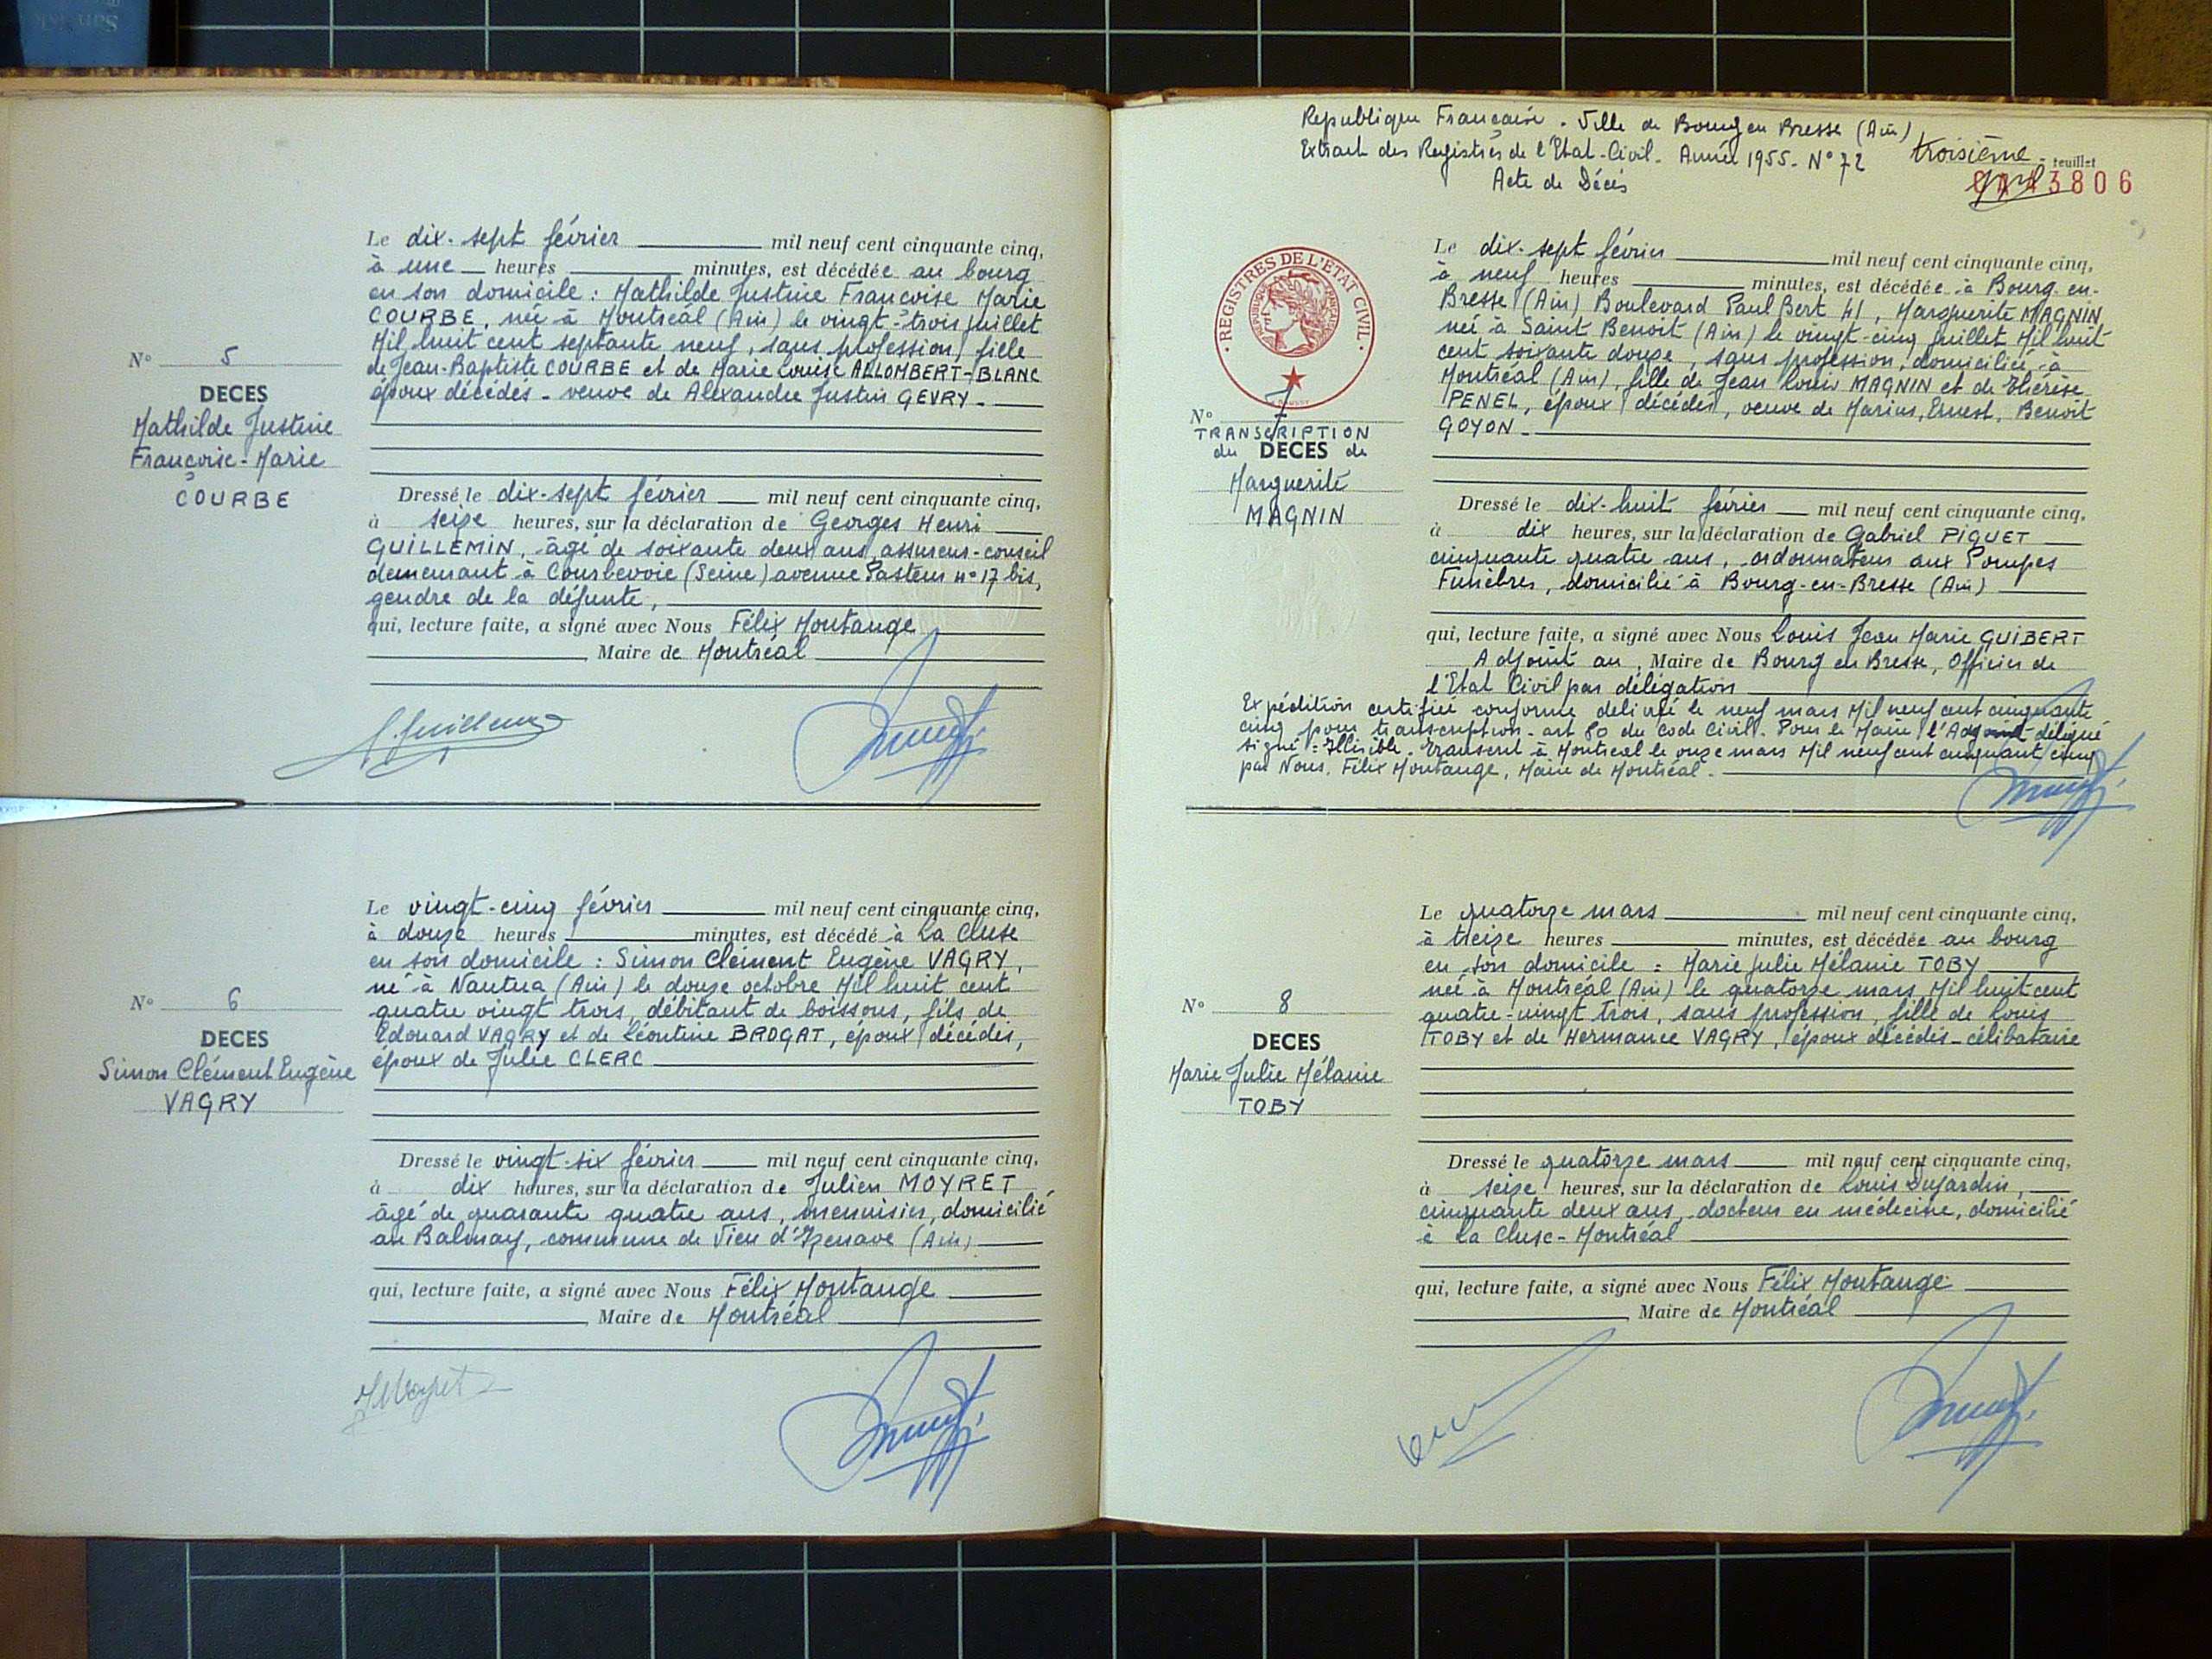 Le dix-sept février mil neuf cent cinquante cinq,
à une heures minutes, est décédée au bourg
en son domicile : Mathilde Justine Françoise Marie
COURBE, née à Montréal (Ain) le vingt-trois juillet
Mil huit cent septante neuf, sans profession, fille
de Jean-Baptiste COURBE et de Marie Louise ALLOMBERT-BLANC
époux décédés - veuve de Alexandre Justin GEVRY -
N° 5
DECES
Mathilde Justine
Françoise-Marie
COURBE
Dressé le dix-sept février mil neuf cent cinquante cinq,
à seize heures, sur la déclaration de Georges Henri
GUILLEMIN, âgé de soixante deux ans, assureur-conseil
demeurant à Courbevoie (Seine) avenue Pasteur n° 17 bis,
gendre de la défunte,
qui, lecture faite, a signé avec Nous Félix Montange
Maire de Montréal
Le vingt-cinq février mil neuf cent cinquante cinq,
à douze heures minutes, est décédé à La Cluse
en son domicile : Simon Clément Eugène VAGRY,
né à Nantua (Ain) le douze octobre Mil huit cent
quatre vingt trois, débitant de boissons, fils de
Edouard VAGRY et de Léontine BROGAT, époux décédés,
époux de Julie CLERC
N° 6
DECES
Simon Clément Eugène
VAGRY
Dressé le vingt-six février mil neuf cent cinquante cinq,
à dix heures, sur la déclaration de Julien MOYRET
âgé de quarante quatre ans, menuisier, domicilié
au Balmay, commune de Vieu d'Izenave (Ain)
qui, lecture faite, a signé avec Nous Félix Montange
Maire de Montréal
Republique Française. Ville de Bourg en Bresse (Ain)
Extrait des Registres de l'Etat-Civil. Année 1955. N° 72
Acte de Décès
troisième feuillet
3806
Le dix-sept février mil neuf cent cinquante cinq,
à neuf heures minutes, est décédée à Bourg-en-
Bresse (Ain) Boulevard Paul Bert 41, Marguerite MAGNIN
née à Saint Benoit (Ain) le vingt-cinq juillet Mil huit
cent soixante douze, sans profession, domiciliée à
Montréal (Ain), fille de Jean Louis MAGNIN et de Thérèse
PENEL, époux décédés, veuve de Marius, Ernest, Benoit
GOYON -
REGISTRES DE L'ETAT CIVIL
N° 7
TRANSCRIPTION
du DECES de
Marguerite
MAGNIN
Dressé le dix-huit février mil neuf cent cinquante cinq,
à dix heures, sur la déclaration de Gabriel PIQUET
cinquante quatre ans, ordonnateur aux Pompes
Funèbres, domicilié à Bourg-en-Bresse (Ain)
qui, lecture faite, a signé avec Nous Louis Jean Marie GUIBERT
Adjoint au, Maire de Bourg en Bresse, Officier de
l'Etat Civil par délégation
Expédition certifiée conforme délivrée le neuf mars Mil neuf cent cinquante
cinq pour transcription - art 80 du Code Civil. Pour le Maire l'Adjoint délégué
signé : Illisible. Transcrit à Montréal le onze mars Mil neuf cent cinquante cinq
par Nous, Félix Montange, Maire de Montréal.
Le quatorze mars mil neuf cent cinquante cinq,
à treize heures minutes, est décédée au bourg
en son domicile : Marie Julie Mélanie TOBY
née à Montréal (Ain) le quatorze mars Mil huit cent
quatre-vingt trois, sans profession, fille de Louis
TOBY et de Hermance VAGRY, époux décédés - célibataire
N° 8
DECES
Marie Julie Mélanie
TOBY
Dressé le quatorze mars mil neuf cent cinquante cinq,
à seize heures, sur la déclaration de Louis Dujardin,
cinquante deux ans, docteur en médecine, domicilié
à La Cluse-Montréal
qui, lecture faite, a signé avec Nous Félix Montange
Maire de Montréal